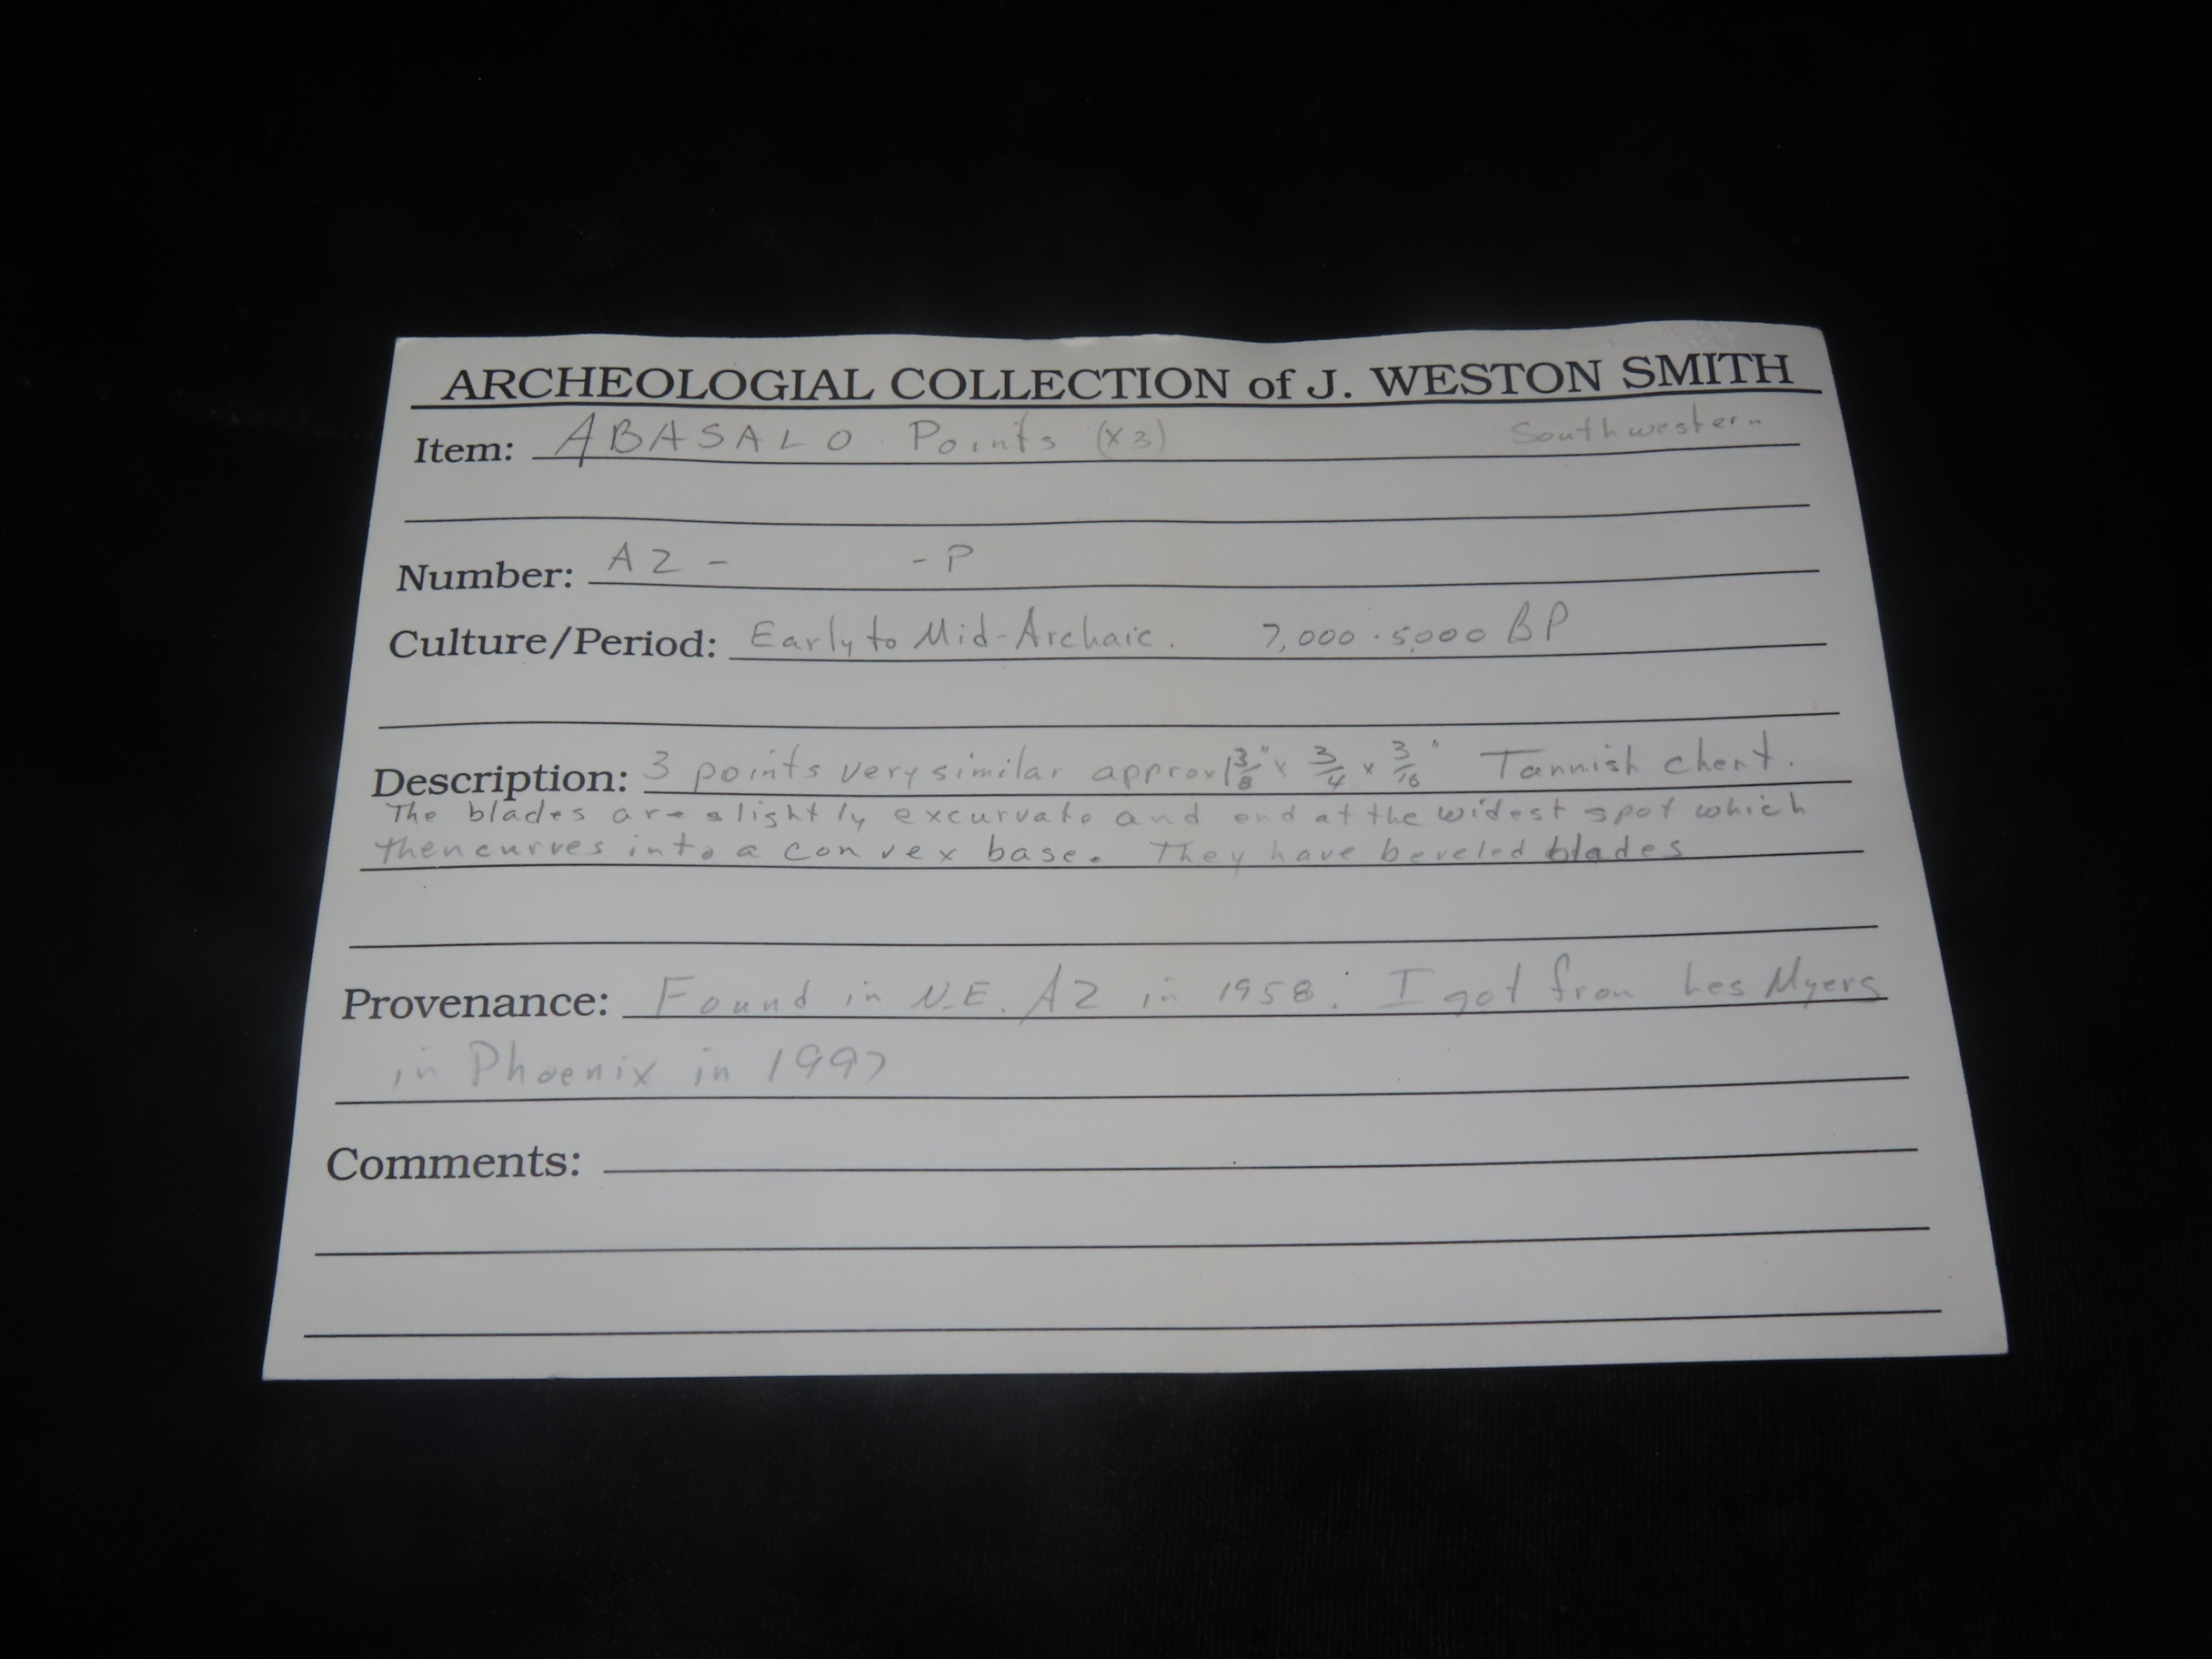 ARCHEOLOGIAL COLLECTION of J. WESTON SMITH
Item: ABASALO Points (x3) Southwestern
Number: AZ - - P
Culture/Period: Early to Mid-Archaic. 7,000 - 5,000 BP
Description: 3 points very similar approx 1 3/8" x 3/4 x 3/16" Tannish chert.
The blades are slightly excurvate and end at the widest spot which
then curves into a convex base. They have beveled blades
Provenance: Found in N.E. AZ in 1958. I got from Les Myers
in Phoenix in 1997
Comments: